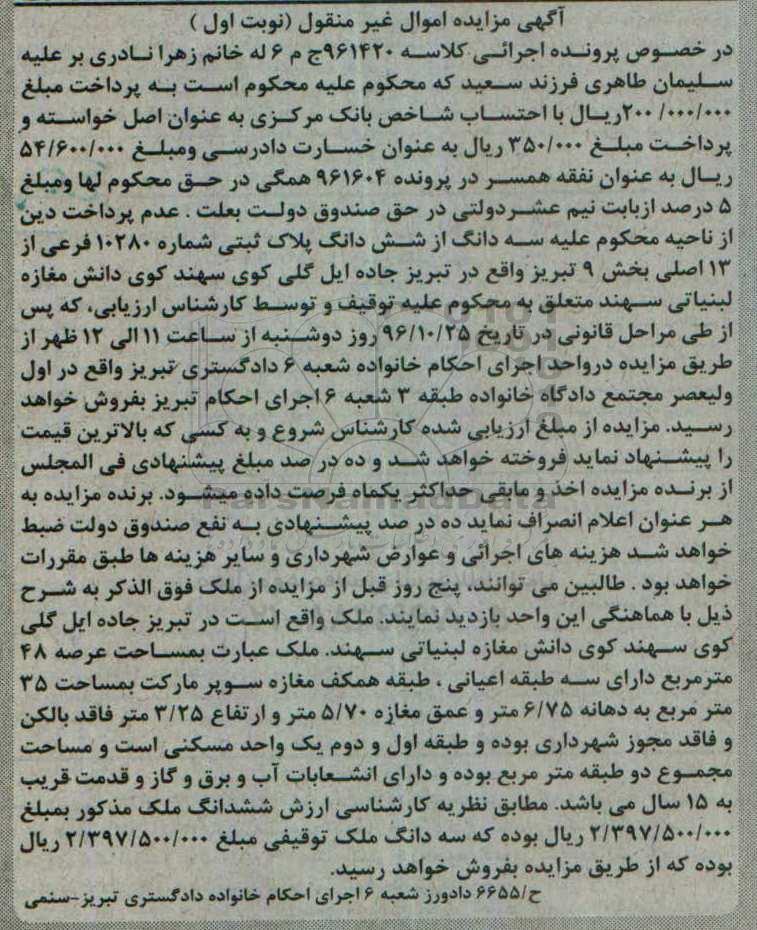 آگهی مزایده اموال غیر منقول (نوبت اول )
در خصوص پرونده اجرائی کلاسه ۹۶۱۴۲۰ج م ۶ له خانم زهرا نادری بر علیه
سلیمان طاهری فرزند سعید که محکوم علیه محکوم است به پرداخت مبلغ
۲۰۰/۰۰۰/۰۰۰ریال با احتساب شاخص بانک مرکزی به عنوان اصل خواسته و
پرداخت مبلغ ۳۵۰/۰۰۰ ریال به عنوان خسارت دادرسی ومبلغ ۵۴/۶۰۰/۰۰۰
ریال به عنوان نفقه همسر در پرونده ۹۶۱۶۰۴ همگی در حق محکوم لها ومبلغ
۵ درصد ازبابت نیم عشردولتی در حق صندوق دولت بعلت . عدم پرداخت دین
از ناحیه محکوم علیه سه دانگ از شش دانگ پلاک ثبتی شماره ۱۰۲۸۰ فرعی از
۱۳ اصلی بخش ۹ تبریز واقع در تبریز جاده ایل گلی کوی سهند کوی دانش مغازه
لبنیاتی سهند متعلق به محکوم علیه توقیف و توسط کارشناس ارزیابی، که پس
از طی مراحل قانونی در تاریخ ۹۶/۱۰/۲۵ روز دوشنبه از ساعت ۱۱ الی ۱۲ ظهر از
طریق مزایده درواحد اجرای احکام خانواده شعبه ۶ دادگستری تبریز واقع در اول
ولیعصر مجتمع دادگاه خانواده طبقه ۳ شعبه ۶ اجرای احکام تبریز بفروش خواهد
رسید. مزایده از مبلغ ارزیابی شده کارشناس شروع و به کسی که بالاترین قیمت
را پیشنهاد نماید فروخته خواهد شد و ده در صد مبلغ پیشنهادی فی المجلس
از برنده مزایده اخذ و مابقی حداکثر یکماه فرصت داده میشود. برنده مزایده به
هر عنوان اعلام انصراف نماید ده در صد پیشنهادی به نفع صندوق دولت ضبط
خواهد شد هزینه های اجرائی و عوارض شهرداری و سایر هزینه ها طبق مقررات
خواهد بود . طالبین می توانند، پنج روز قبل از مزایده از ملک فوق الذکر به شرح
ذیل با هماهنگی این واحد بازدید نمایند. ملک واقع است در تبریز جاده ایل گلی
کوی سهند کوی دانش مغازه لبنیاتی سهند. ملک عبارت بمساحت عرصه ۴۸
مترمربع دارای سه طبقه اعیانی ، طبقه همکف مغازه سوپر مارکت بمساحت ۳۵
متر مربع به دهانه ۶/۷۵ متر و عمق مغازه ۵/۷۰ متر و ارتفاع ۳/۲۵ متر فاقد بالکن
و فاقد مجوز شهرداری بوده و طبقه اول و دوم یک واحد مسکنی است و مساحت
مجموع دو طبقه متر مربع بوده و دارای انشعابات آب و برق و گاز و قدمت قریب
به ۱۵ سال می باشد. مطابق نظریه کارشناسی ارزش ششدانگ ملک مذکور بمبلغ
۲/۳۹۷/۵۰۰/۰۰۰ ریال بوده که سه دانگ ملک توقیفی مبلغ ۲/۳۹۷/۵۰۰/۰۰۰ ریال
بوده که از طریق مزایده بفروش خواهد رسید.
ح/۶۶۵۵ دادورز شعبه ۶ اجرای احکام خانواده دادگستری تبریز-سنمی
ParsNamadData